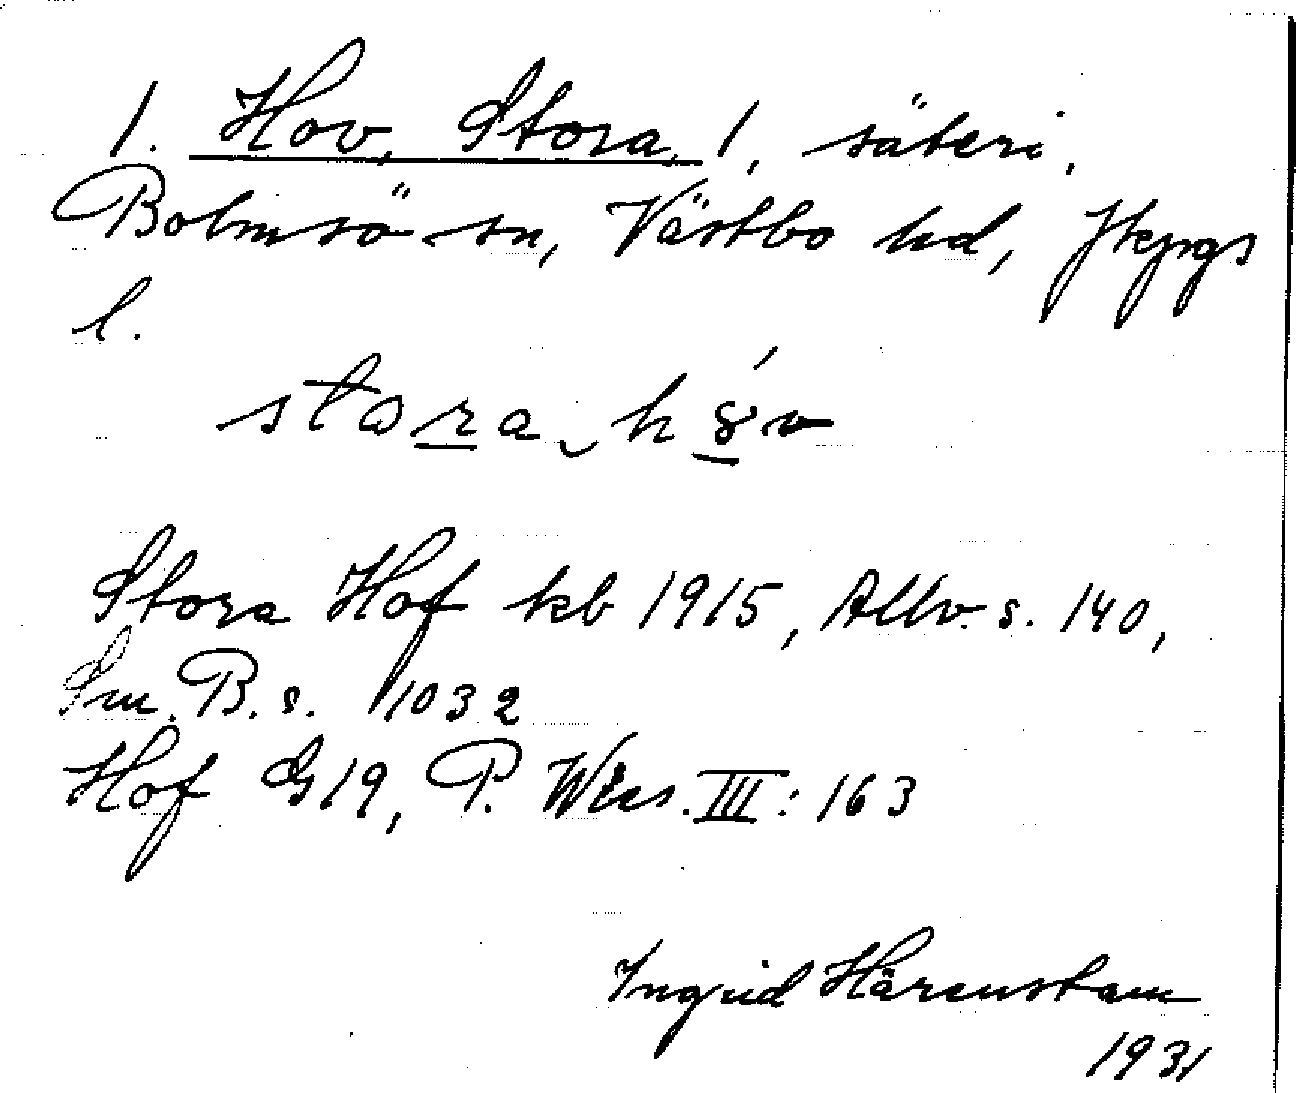 1. Hov, Stora, 1, säteri,
Bolmsö sn, Västbo hd, Jkpgs
l.
stora ‿ h
Stora Hof kb 1915, Allv. s. 140,
Sm. B. s. 1032
Hof G19, P. Wies. III: 163
Ingrid Härenstam
1931